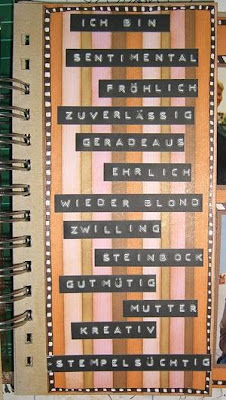 ICH BIN
SENTIMENTAL
FRÖHLICH
ZUVERLÄSSIG
GERADEAUS
EHRLICH
WIEDER BLOND
ZWILLING
STEINBOCK
GUTMÜTIG
MUTTER
KREATIV
STEMPELSÜCHTIG